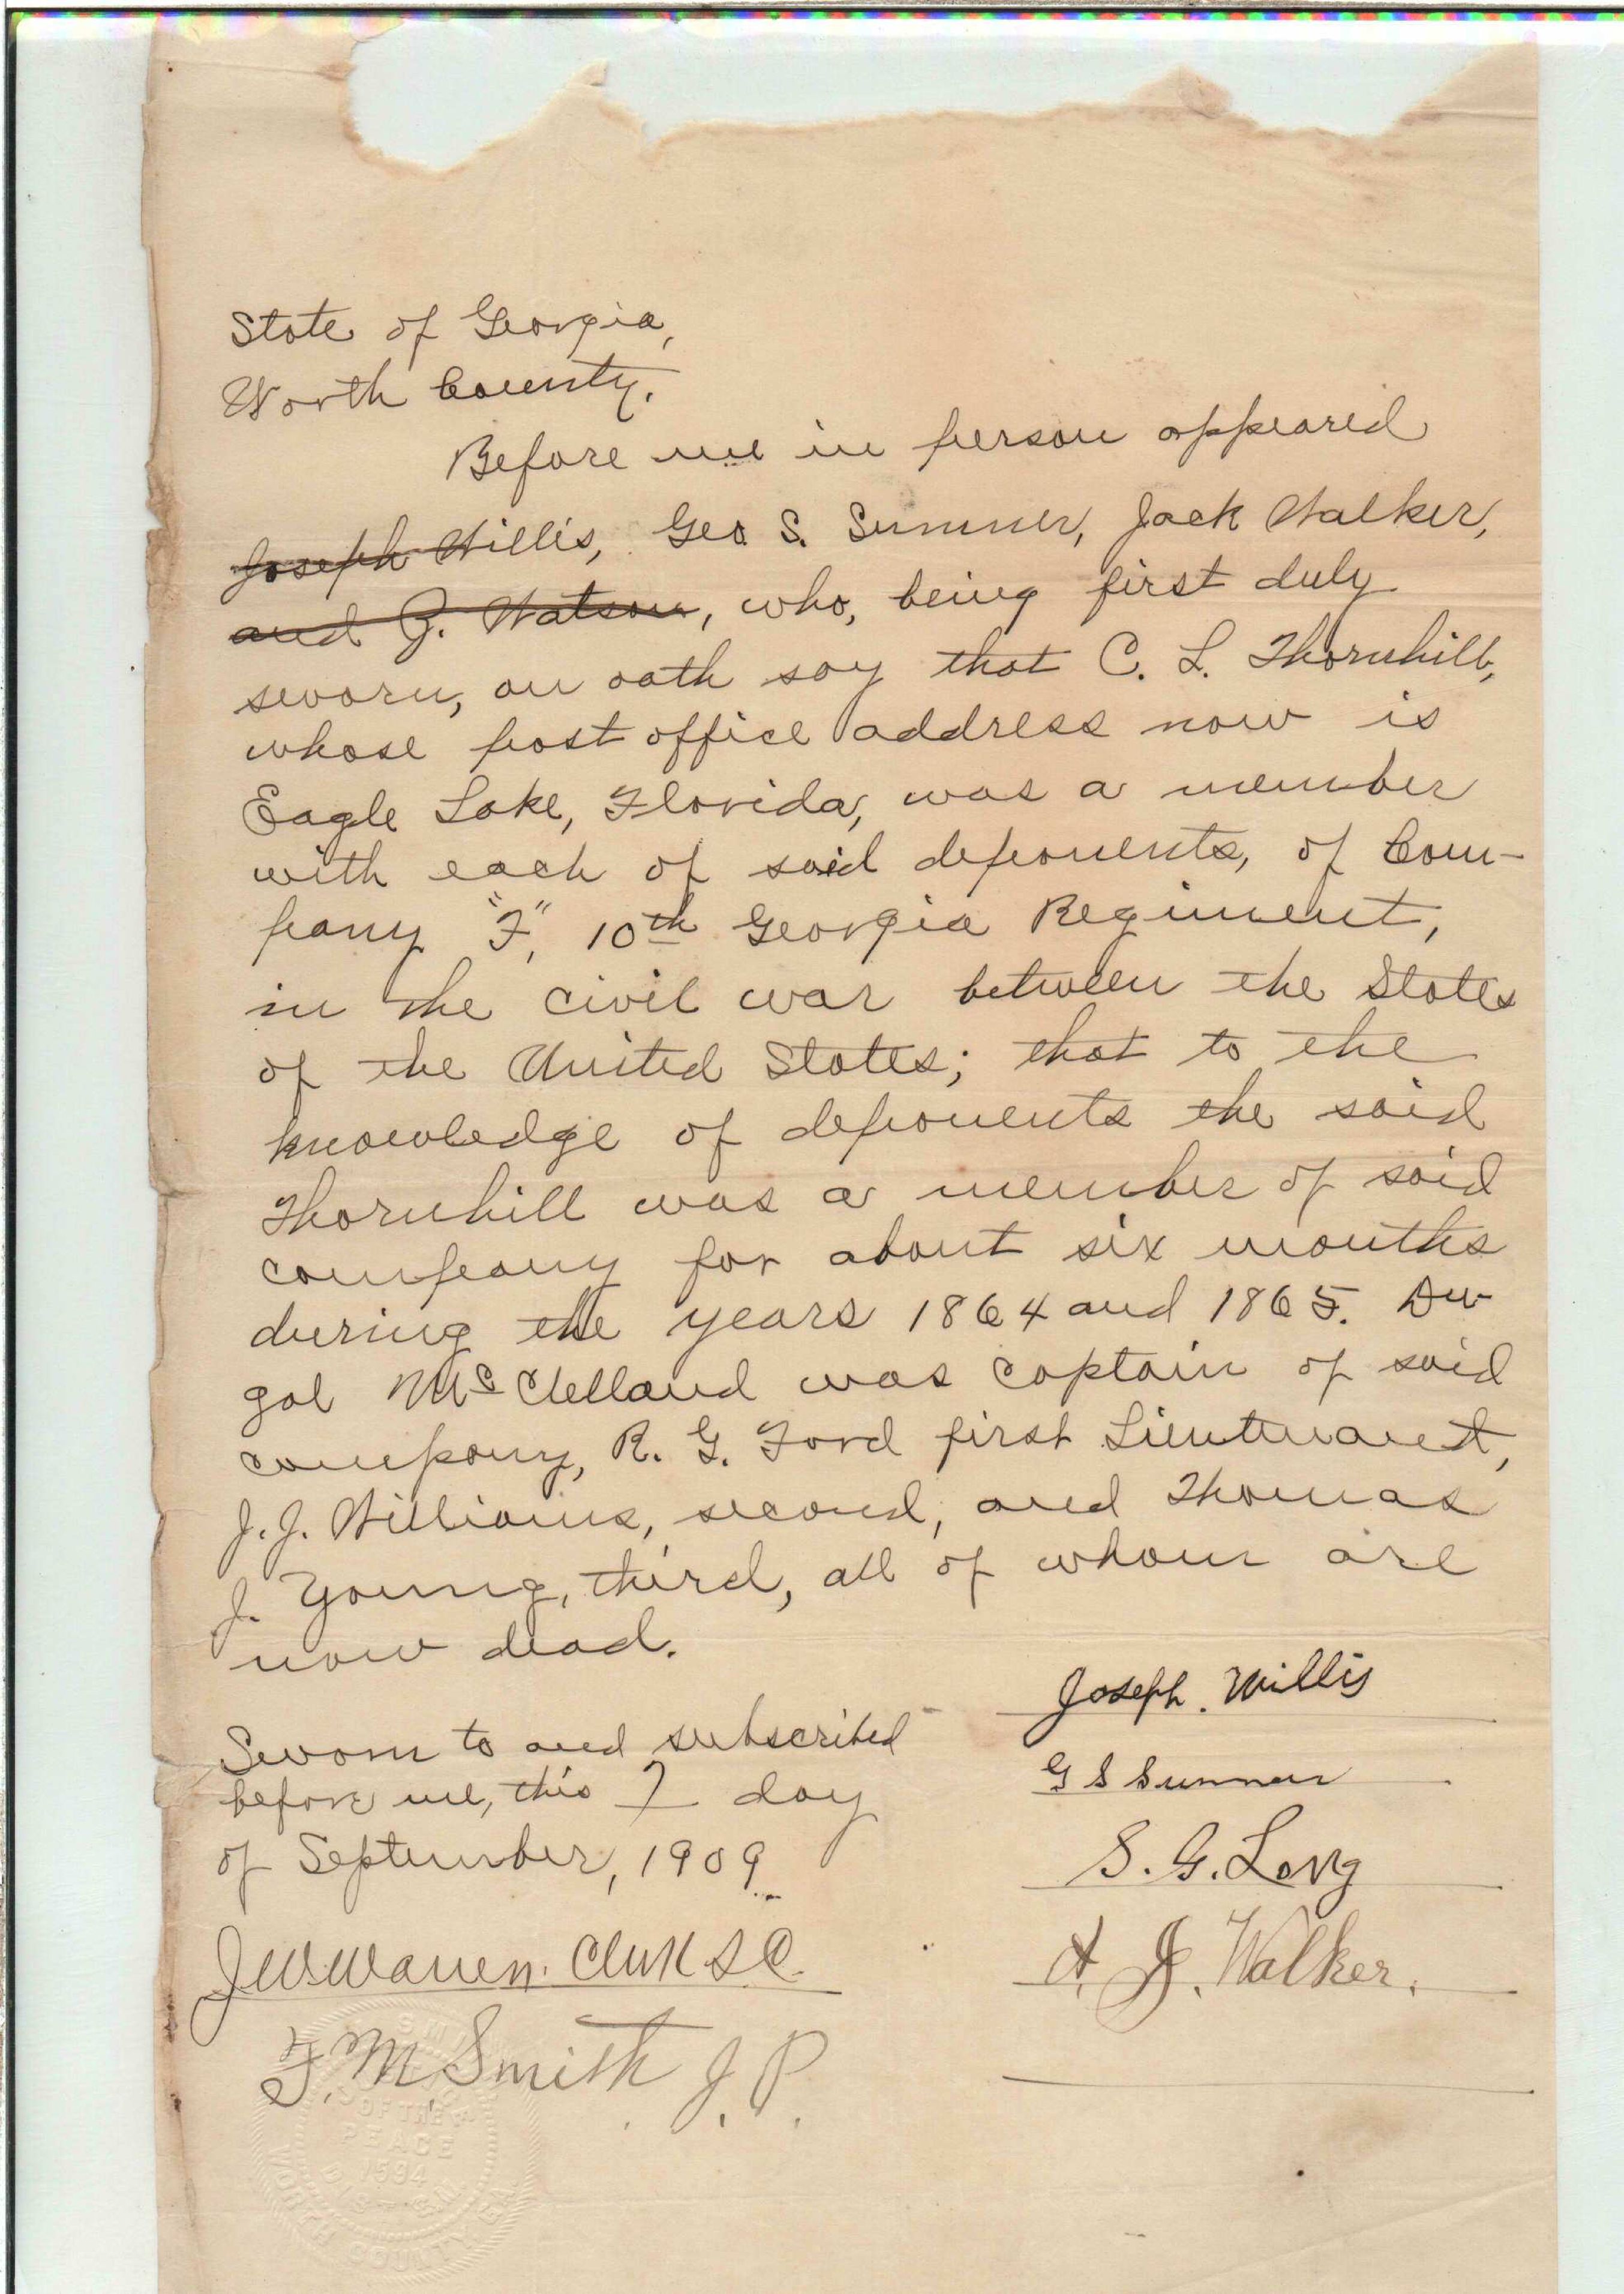 State of Georgia,
Worth County.
Before me in person appeared
Joseph Willis, Geo. S. Sumner, Jack Walker,
and J. Watson, who, being first duly
sworn, on oath say that C. L. Thornhill,
whose post office address now is
Eagle Lake, Florida, was a member
with each of said deponents, of Com-
pany "F", 10th Georgia Regiment,
in the civil war between the States
of the United States; that to the
knowledge of deponents the said
Thornhill was a member of said
company for about six months
during the years 1864 and 1865. Du-
gal McClelland was captain of said
company, R. G. Ford first Lieutenant,
J. J. Williams, second, and Thomas
J. Young, third, all of whom are
now dead.
Joseph. Willis
Sworn to and subscribed
before me, this 7 day
of September, 1909
G S Sumner
S. G. Long
J W Warren. Clerk S C
A. J. Walker.
F. M. Smith J. P.
OF THE
PEACE
1594
DIST. G.M.
WORTH COUNTY, GA